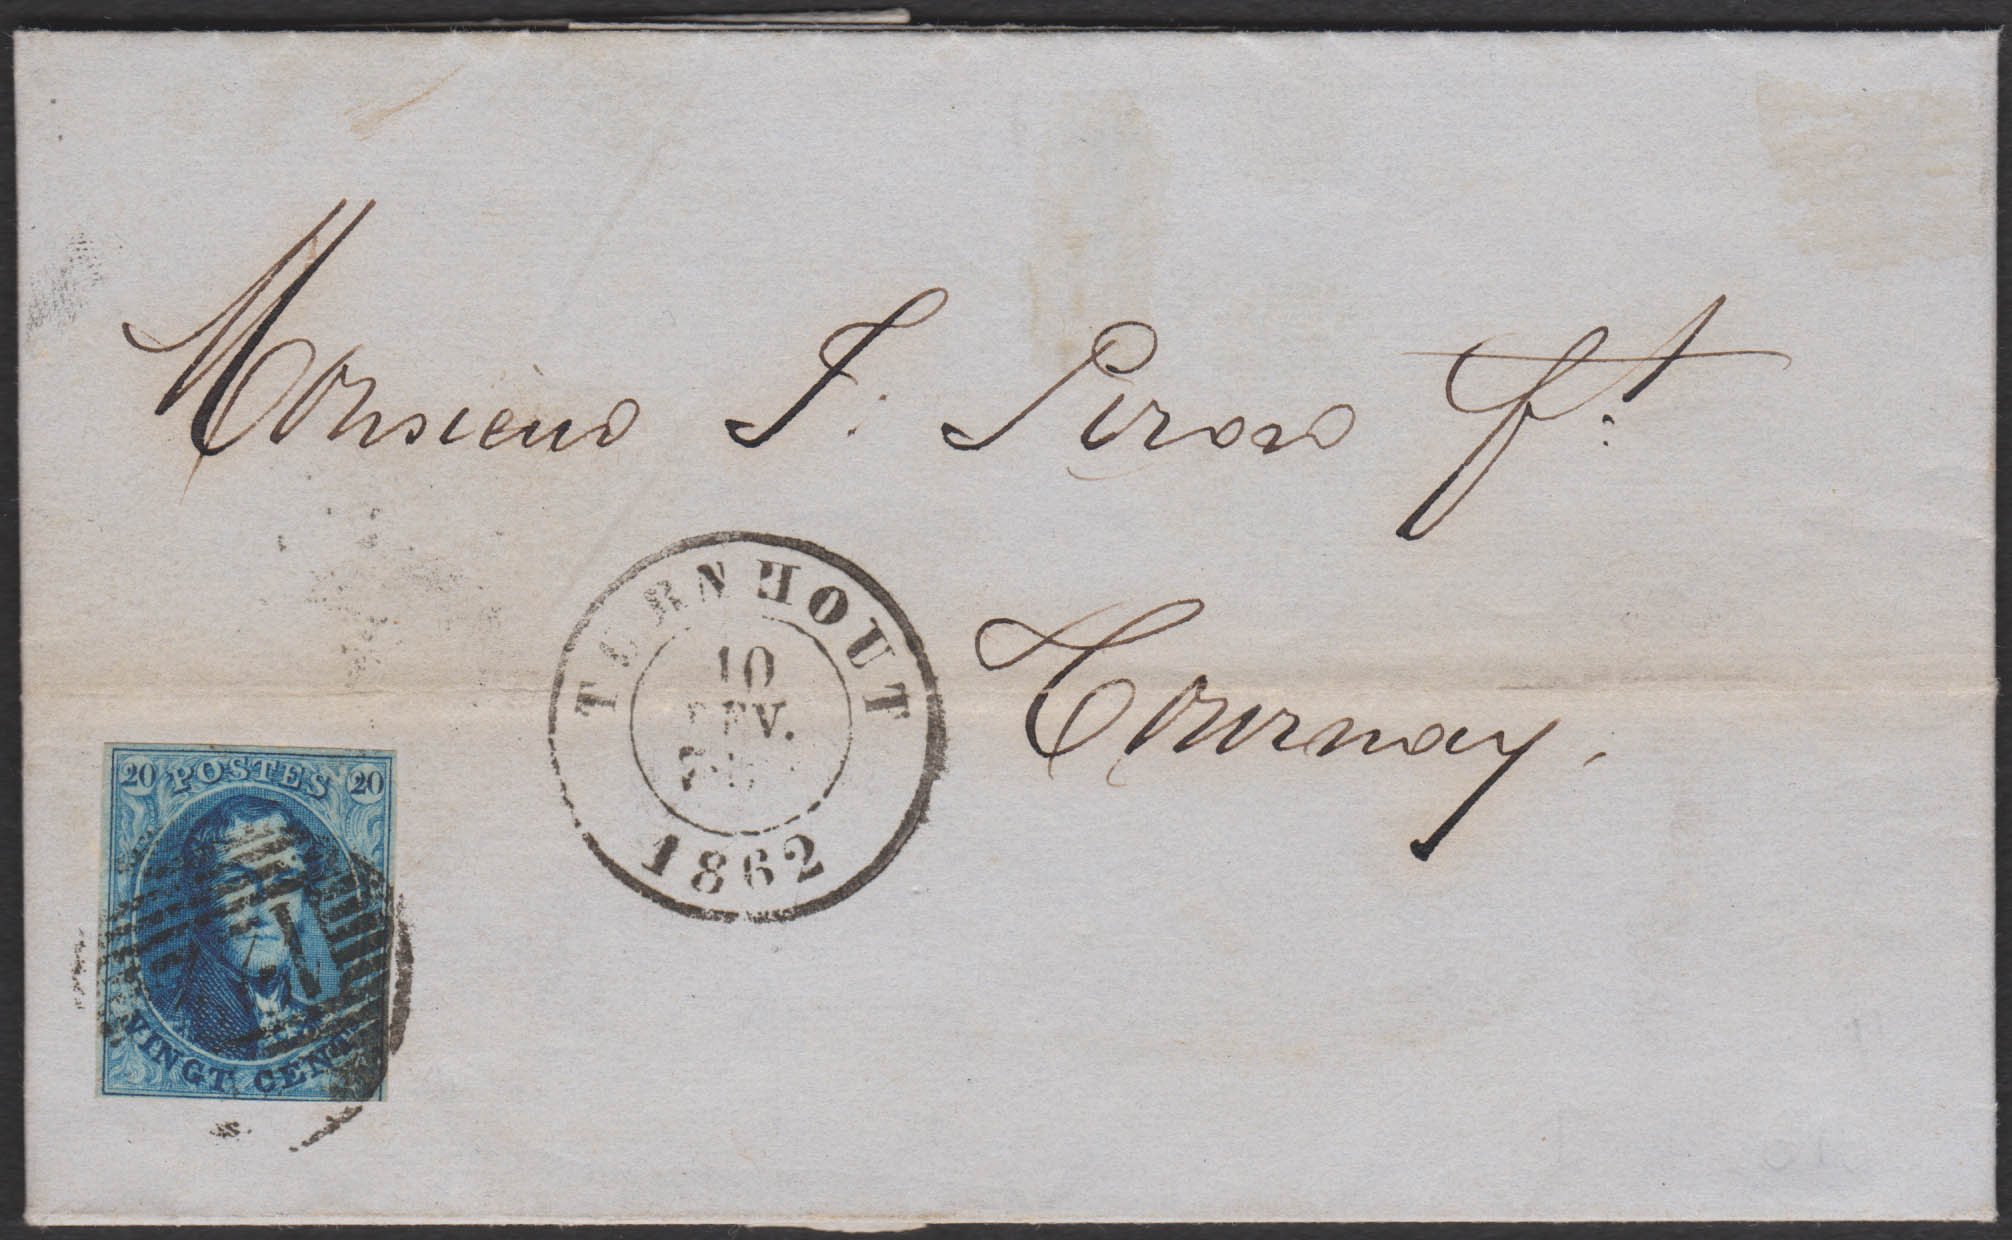 Monsieur J. Piron ft.
TURNHOUT
10
FEV.
1862
Tournay.
20 POSTES 20
VINGT CENT